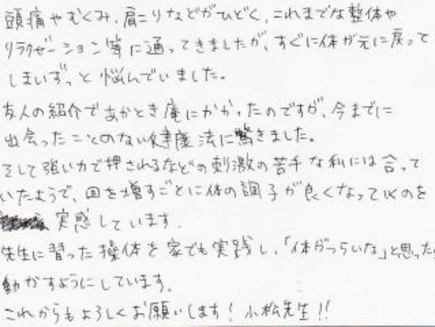 頭痛やむくみ、肩こりなどがひどく、これまでな整体や
リラクゼーション等に通ってきましたが、すぐに体が元に戻って
しまいずっと悩んでいました。
友人の紹介であかとき庵にかかったのですが、今までに
出会ったことのない健康法に驚きました。
そして強い力で押されるなどの刺激の苦手な私には合って
いたようで、回を増すごとに体の調子が良くなっていくのを
実感しています。
先生に習った操体を家でも実践し、「体がつらいな」と思ったら
動かすようにしています。
これからもよろしくお願いします!小松先生!!